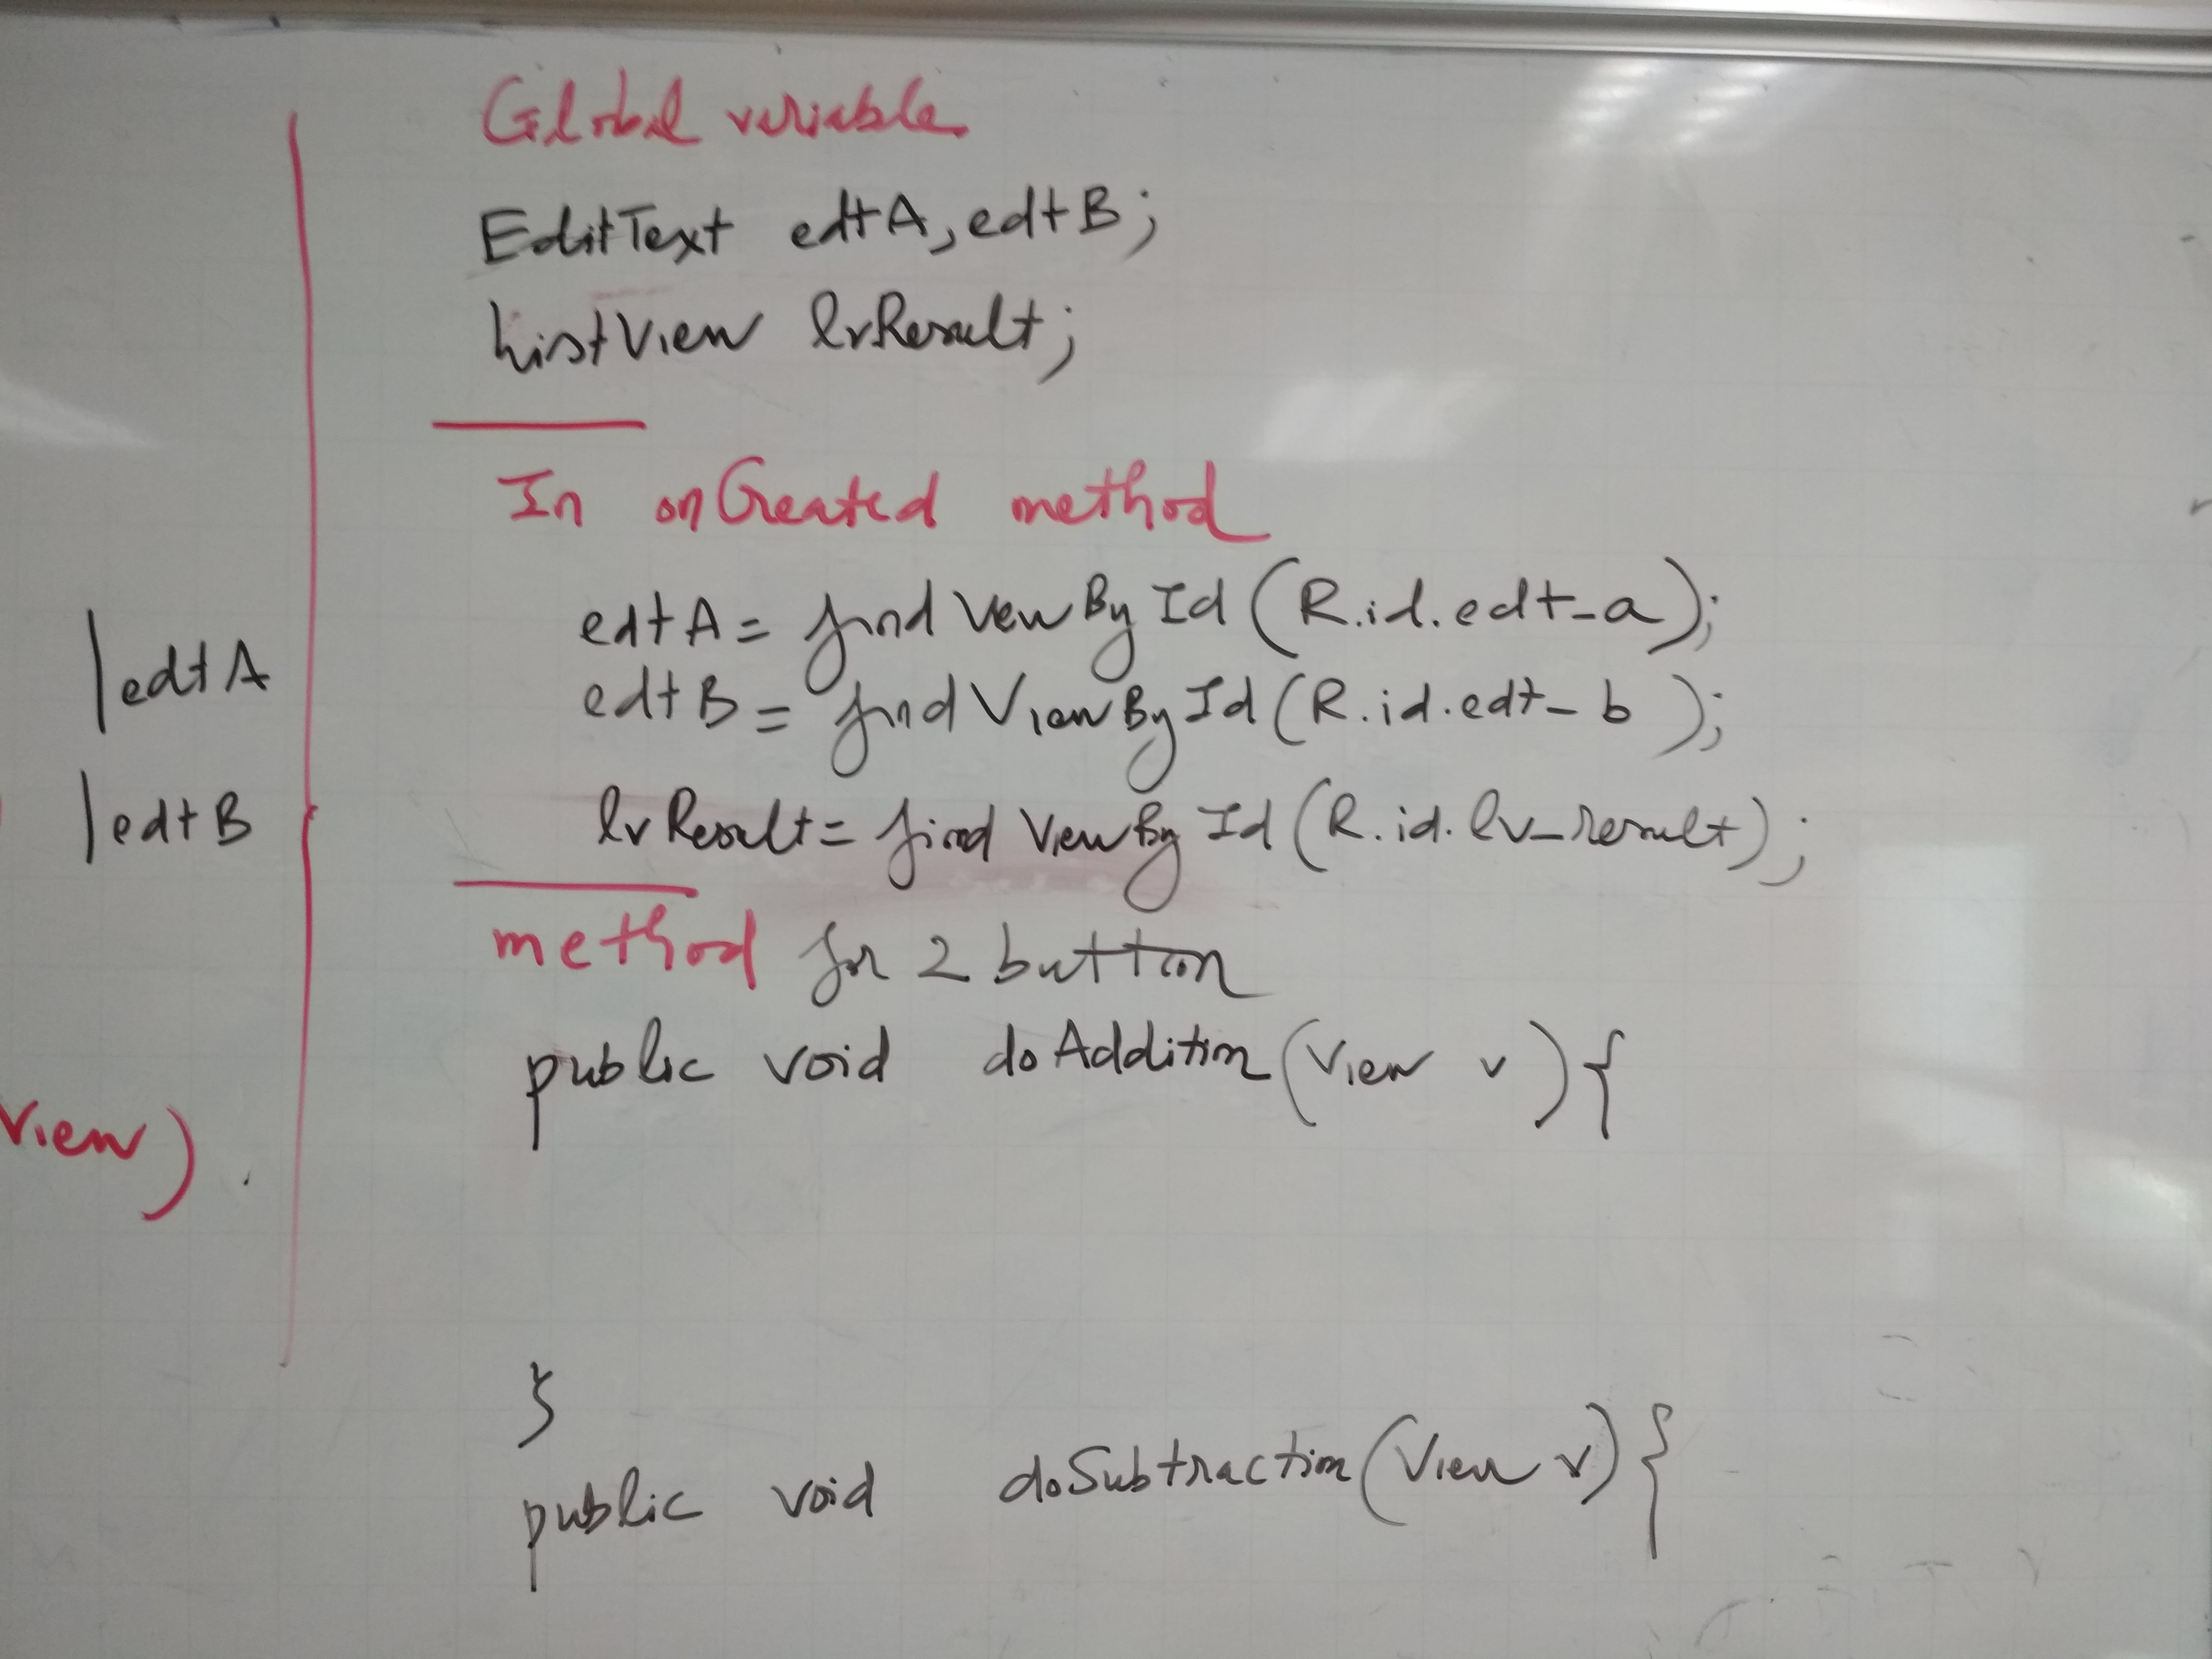 Global variable
EditText edtA, edtB;
ListView lvResult;
In onCreated method
edtA = findViewById(R.id.edt_a);
edtB = findViewById(R.id.edt_b);
lvResult = findViewById(R.id.lv_result);
method for 2 button
public void doAddition(View v){
}
public void doSubtraction(View v){
edtA
edtB
View)